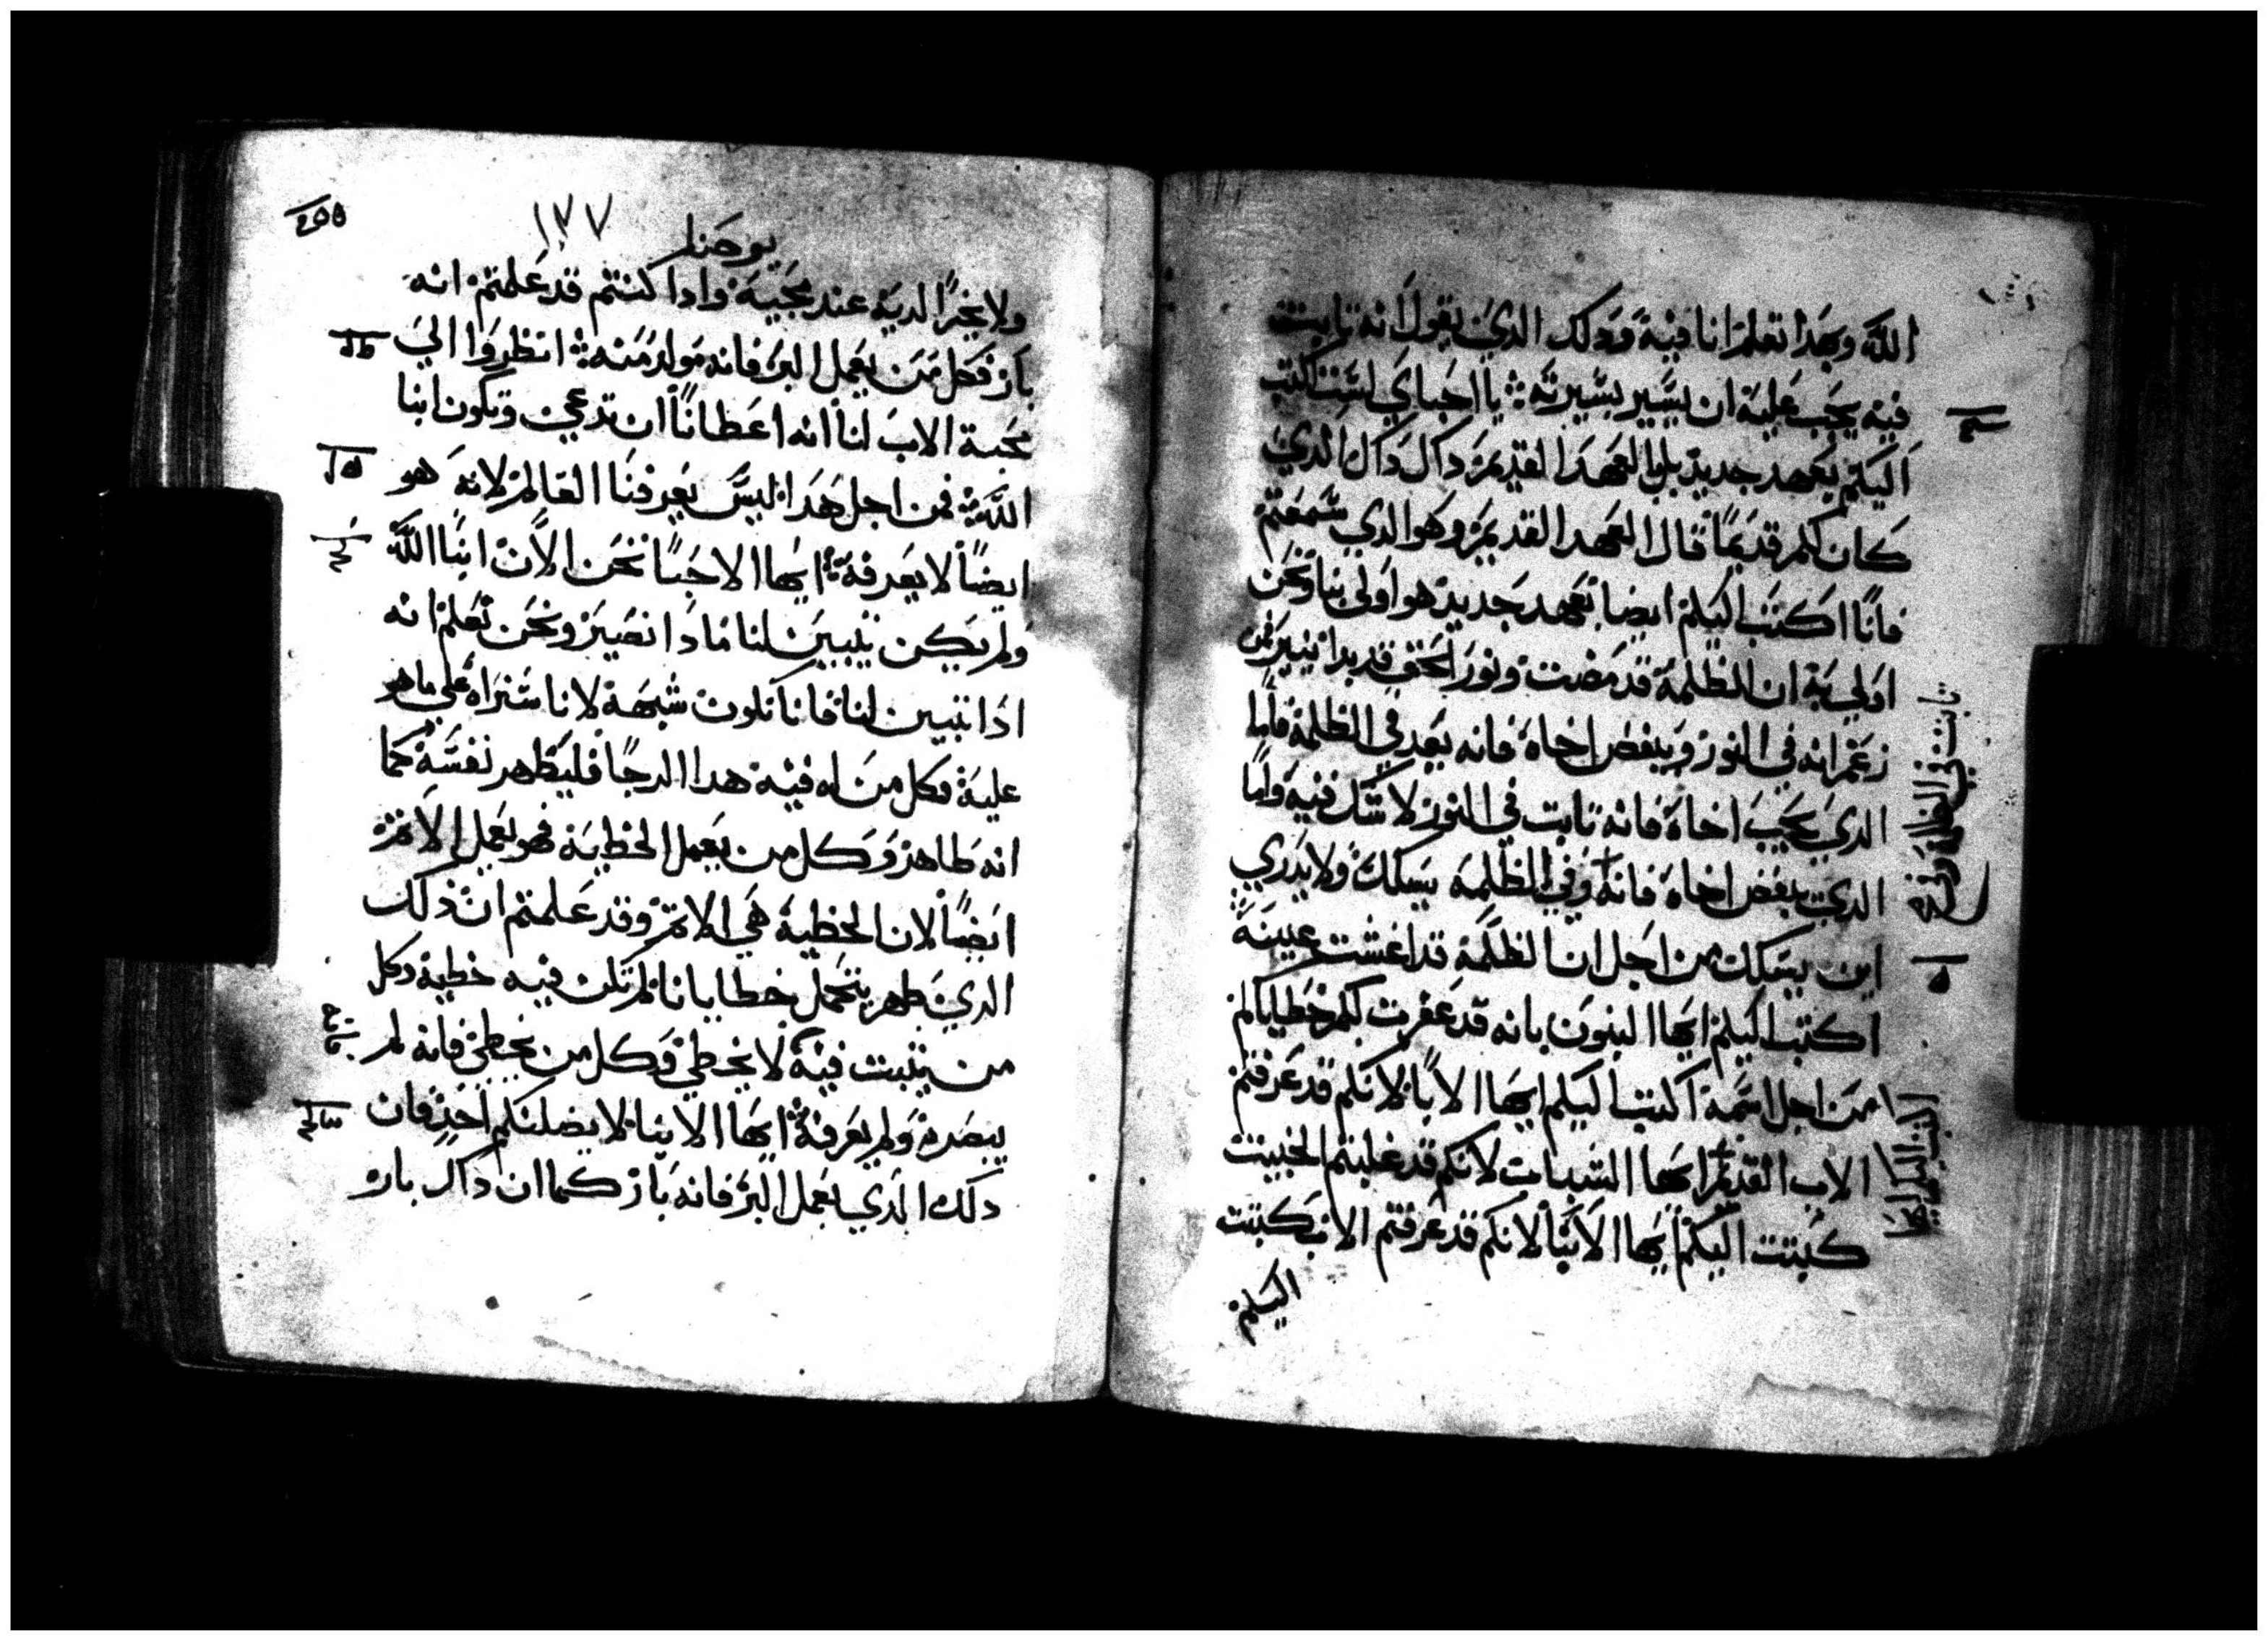 الله وبهذا نعلم انا فيه وذلك الذي يقول انه تابت
فيه يجب عليه ان يسير بسيرته يا احباي لست اكتب
اليكم بعهد جديد بل بالعهد القديم داك داك الذي
كان لكم قديما فال العهد القديم وهو الدي سمعتم
فانا اكتب اليكم ايضا بعهد جديد هو اولى بنا ونحن
اولي به ان الظلمة قد مضت ونور الحق قد بدا ينير من
زعم انه في النور ويبغض اخاه فانه بعد في الظلمة فاما
الدي يحب اخاه فانه تابت في النور لا شك فيه واما
الدي يبغض اخاه فانه وفي الظلمه يسلك ولا يدري
اين يسلك من اجل ان الظلمة قد اغشت عينيه
اكتب اليكم ايها البنون بانه قد غفرت لكم خطاياكم
من اجل اسمه اكتب اليكم ايها الابا لانكم قد عرفتم
الاب القديم ايها الشباب لانكم قد غلبتم الخبيت
كتبت اليكم ايها الابنا لانكم قد عرفتم الاب كتبت
اليكم
تابت في الظلمة
اكتب اليكم ايها
٢٥٥
١٧٧
يوحنا
ولا نخزا لديه عند مجيه وادا كنتم قد علمتم انه
بار فكل من يعمل البر فانه مولد منه انظروا الي
محبة الاب لنا انه اعطانا ان ندعي ونكون ابنا
الله فمن اجل هدا ليس يعرفنا العالم لانه هو
ايضا لا يعرفه ايها الاحبا نحن الان ابنا الله
ولم يكن يتبين لنا مادا نصير ونحن نعلم انه
ادا تبين لنا فانا نكون شبهه لانا سنراه علي ماهو
عليه فكل من له فيه هدا الرجا فليطهر نفسه كما
انه طاهر وكل من يعمل الخطية فهو يعمل الاتم
ايضا لان الخطية هي الاتم وقد علمتم ان ذلك
الدي ظهر يتحمل خطايانا لم تكن فيه خطية وكل
من يتبت فيه لا يخطي وكل من يخطي فانه لم
يبصره ولم يعرفه ايها الابنا لا يضلنكم احد فان
دلك الدي يعمل البر فانه بار كما ان داك بار